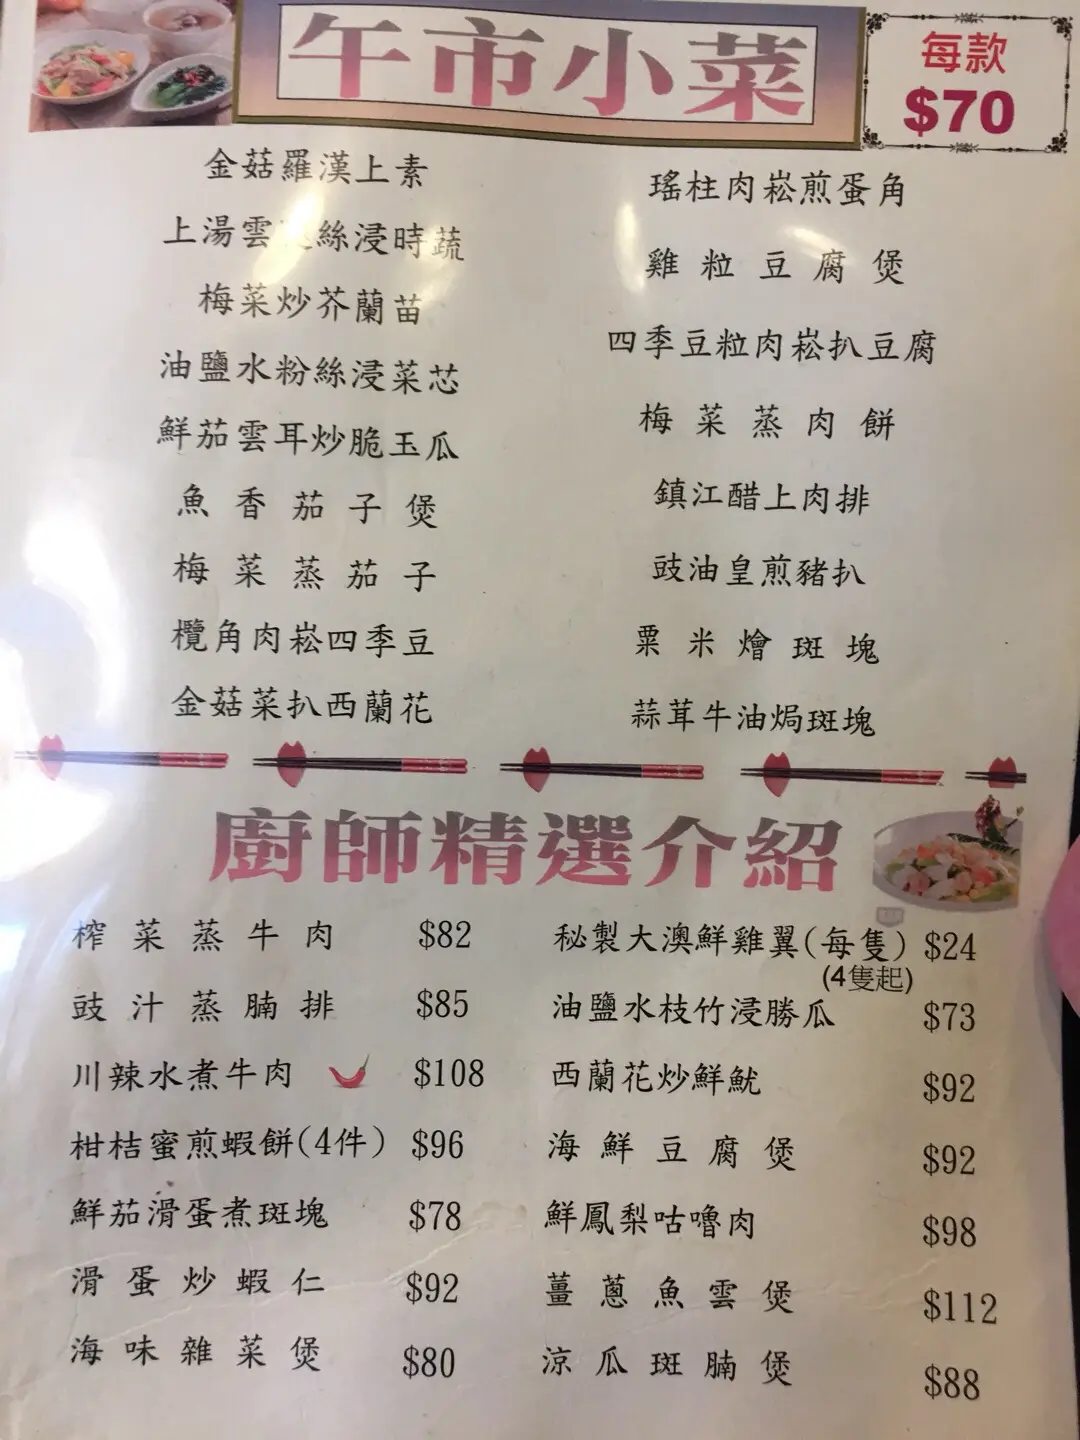 午市小菜
每款
$70
金菇羅漢上素
上湯雲 絲浸時蔬
梅菜炒芥蘭苗
油鹽水粉絲浸菜芯
鮮茄雲耳炒脆玉瓜
魚香茄子煲
梅菜蒸茄子
欖角肉崧四季豆
金菇菜扒西蘭花
瑤柱肉崧煎蛋角
雞粒豆腐煲
四季豆粒肉崧扒豆腐
梅菜蒸肉餅
鎮江醋上肉排
豉油皇煎豬扒
粟米燴斑塊
蒜茸牛油焗斑塊
廚師精選介紹
榨菜蒸牛肉 $82
豉汁蒸腩排 $85
川辣水煮牛肉 $108
柑桔蜜煎蝦餅(4件) $96
鮮茄滑蛋煮斑塊 $78
滑蛋炒蝦仁 $92
海味雜菜煲 $80
秘製大澳鮮雞翼(每隻) $24
(4隻起)
油鹽水枝竹浸勝瓜 $73
西蘭花炒鮮魷 $92
海鮮豆腐煲 $92
鮮鳳梨咕嚕肉 $98
薑蔥魚雲煲 $112
涼瓜斑腩煲 $88